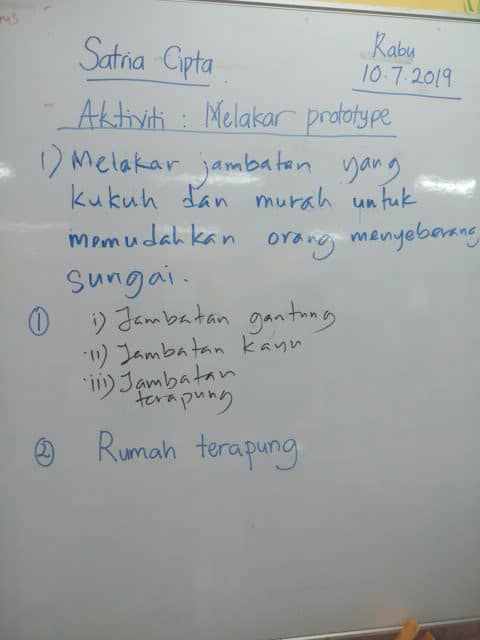 Satria Cipta
Rabu
10.7.2019
Aktiviti : Melakar prototype
1) Melakar jambatan yang
kukuh dan murah untuk
memudahkan orang menyeberang
sungai.
① i) Jambatan gantung
ii) Jambatan kayu
iii) Jambatan
terapung
② Rumah terapung